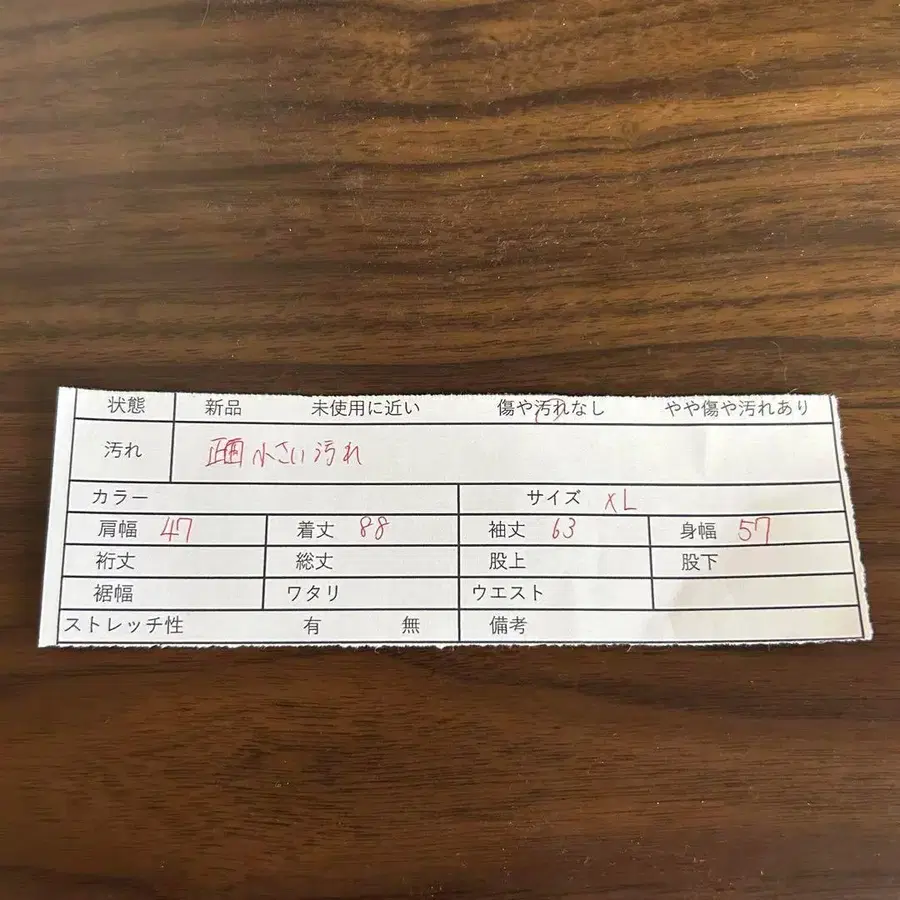 状態 新品 未使用に近い 傷や汚れなし やや傷や汚れあり
汚れ 正面 小さい汚れ
カラー サイズ XL
肩幅 47 着丈 88 袖丈 63 身幅 57
裄丈 総丈 股上 股下
裾幅 ワタリ ウエスト
ストレッチ性 有 無 備考